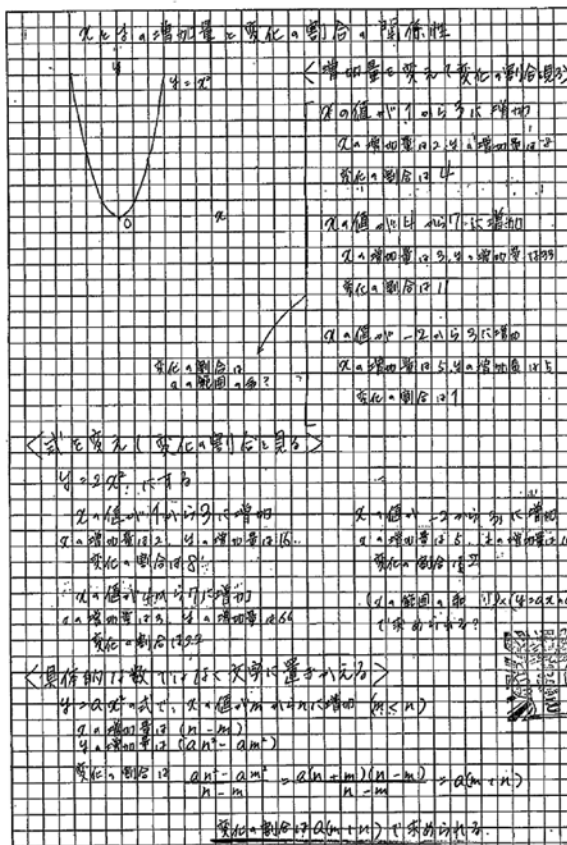 xとyの増加量と変化の割合の関係性
y
y=x²
O
x
<増加量を変えて変化の割合を見る>
xの値が1から3に増加
xの増加量は2、yの増加量は8
変化の割合は4
xの値が4から7に増加
xの増加量は3、yの増加量は33
変化の割合は11
xの値が-2から3に増加
xの増加量は5、yの増加量は5
変化の割合は1
変化の割合は
xの範囲の和?
<式を変えて変化の割合を見る>
y=2x²にする
xの値が1から3に増加
xの増加量は2、yの増加量は16
変化の割合は8
xの値が4から7に増加
xの増加量は3、yの増加量は66
変化の割合は22
xの値が-2から3に増加
xの増加量は5、yの増加量は10
変化の割合は2
(xの範囲の和)×(y=ax²の
で求められる?
<具体的な数ではなく文字に置きかえる>
y=ax²の式で、xの値がmからnに増加 (m<n)
xの増加量は (n-m)
yの増加量は (an²-am²)
変化の割合は (an²-am²)/(n-m) = a(n+m)(n-m)/(n-m) = a(m+n)
変化の割合はa(m+n)で求められる